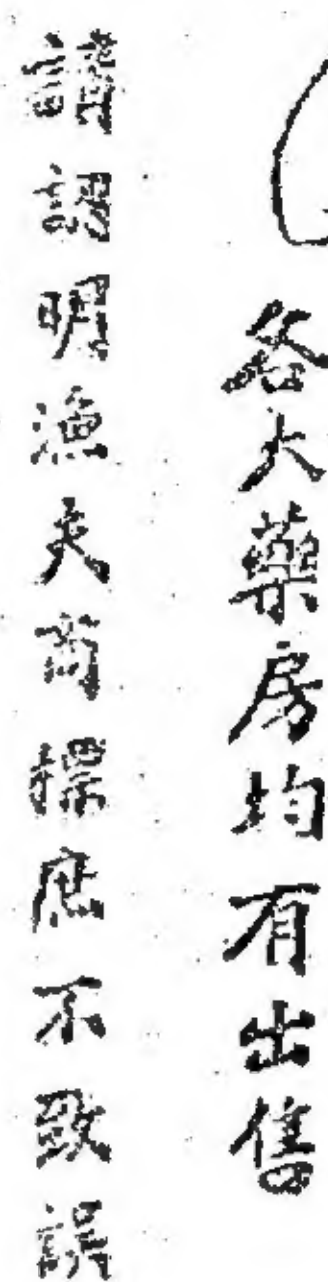 各大藥房均有出售
請認明漁夫商標庶不致誤